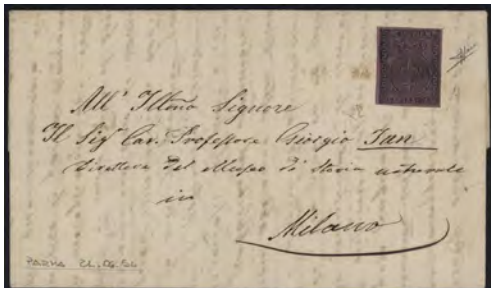 All' Illmo Signore
Il Sigr Cav. Professore Giorgio Jan
Direttore del Museo di Storia naturale
in
Milano
PARMA 21.06.54